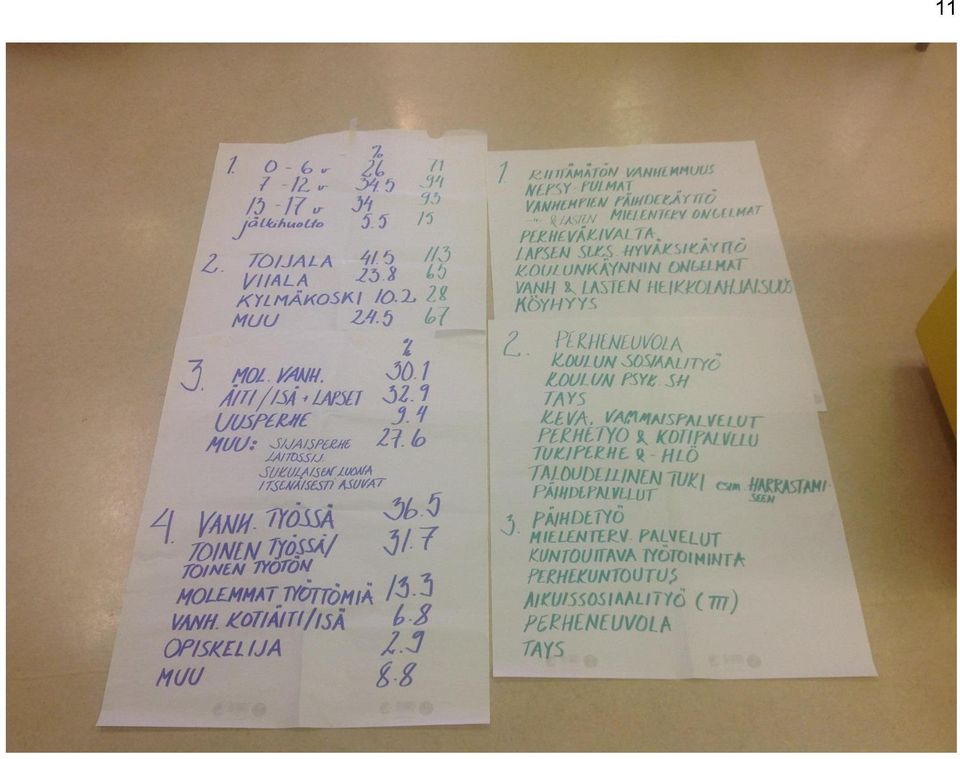 11
%
1. 0-6 v 26 71
7-12 v 34.5 94
13-17 v 34 93
jälkihuolto 5.5 15
2. TOIJALA 41.5 113
VIIALA 23.8 65
KYLMÄKOSKI 10.2 28
MUU 24.5 67
%
3. MOL. VANH. 30.1
ÄITI/ISÄ + LAPSET 32.9
UUSPERHE 9.4
MUU: SIJAISPERHE 27.6
LAITOSSIJ.
SUKULAISEN LUONA
ITSENÄISESTI ASUVAT
4. VANH. TYÖSSÄ 36.5
TOINEN TYÖSSÄ/ 31.7
TOINEN TYÖTÖN
MOLEMMAT TYÖTTÖMIÄ 13.3
VANH. KOTIÄITI/ISÄ 6.8
OPISKELIJA 2.9
MUU 8.8
1. RIITTÄMÄTÖN VANHEMMUUS
NEPSY-PULMAT
VANHEMPIEN PÄIHDEKÄYTTÖ
-"- & LASTEN MIELENTERV ONGELMAT
PERHEVÄKIVALTA
LAPSEN SEKS. HYVÄKSIKÄYTTÖ
KOULUNKÄYNNIN ONGELMAT
VANH & LASTEN HEIKKOLAHJAISUUS
KÖYHYYS
2. PERHENEUVOLA
KOULUN SOSIAALITYÖ
KOULUN PSYK. SH
TAYS
KEVA, VAMMAISPALVELUT
PERHETYÖ & KOTIPALVELU
TUKIPERHE & -HLÖ
TALOUDELLINEN TUKI esim. HARRASTAMI-
SEEN
PÄIHDEPALVELUT
3. PÄIHDETYÖ
MIELENTERV. PALVELUT
KUNTOUTTAVA TYÖTOIMINTA
PERHEKUNTOUTUS
AIKUISSOSIAALITYÖ (TTT)
PERHENEUVOLA
TAYS